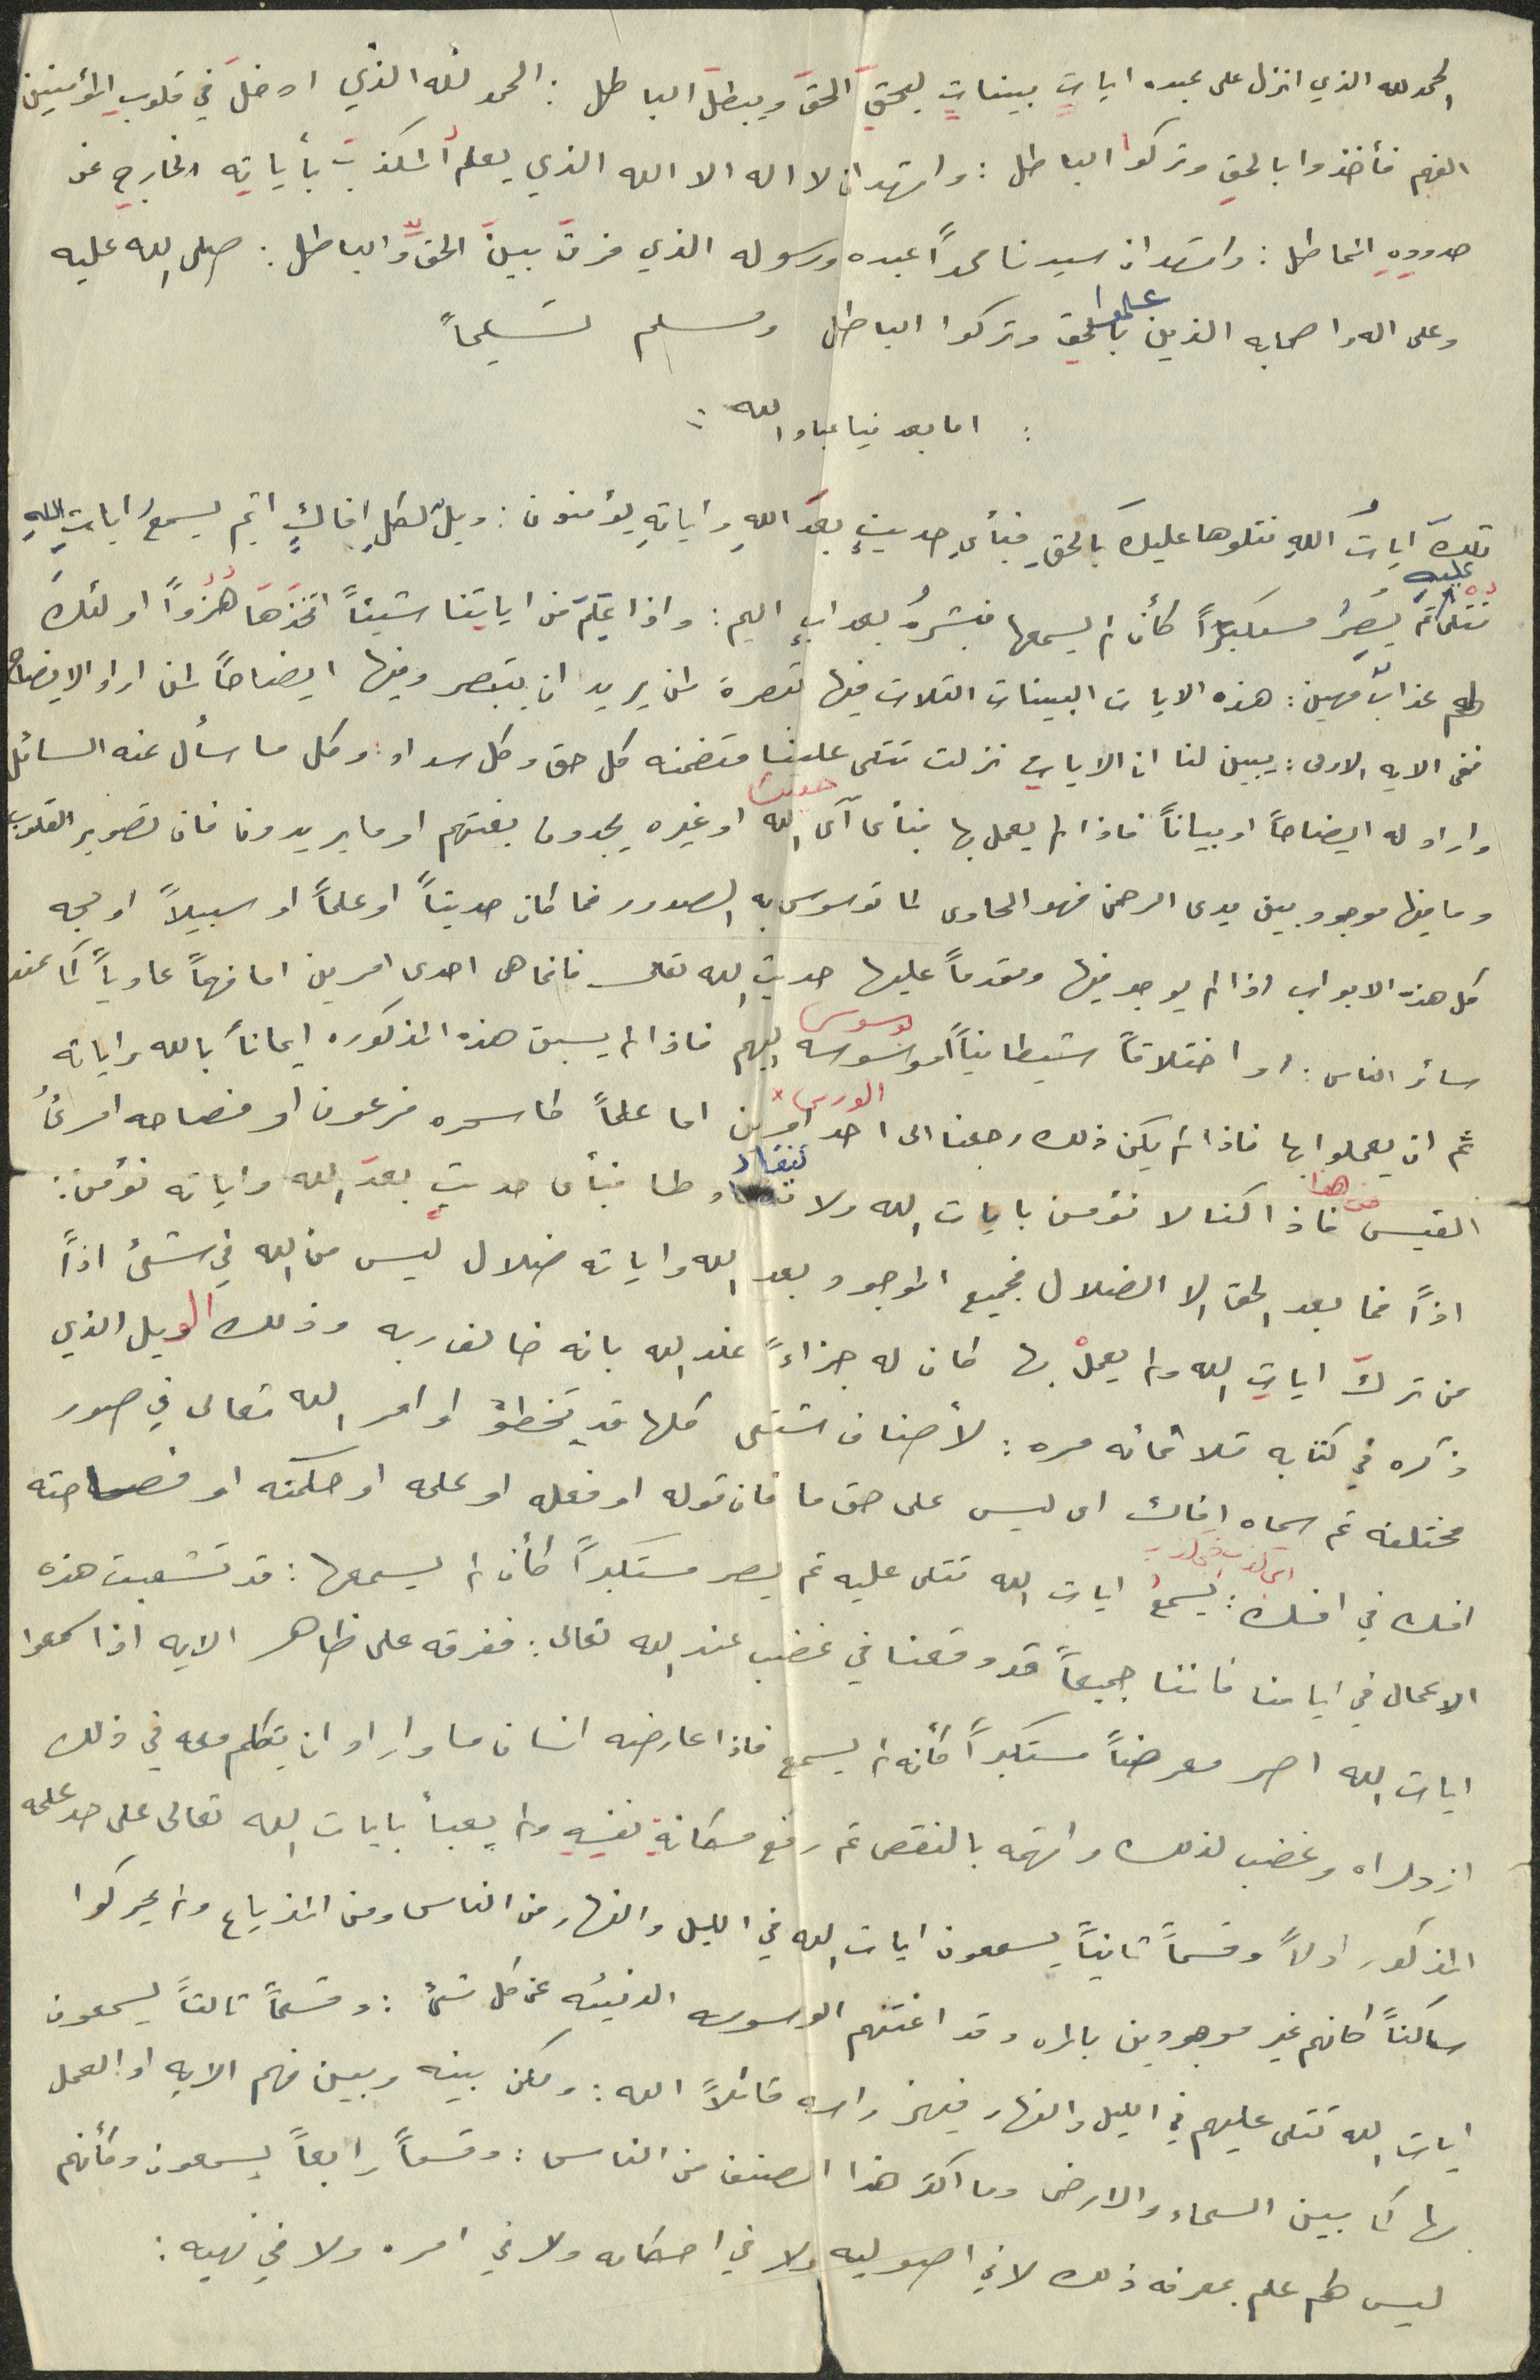 الحمد لله الذي انزل على عبده اياتٍ بيناتٍ ليحقَ الحقَ ويبطلَ الباطل : الحمد لله الذي ادخلَ في قلوبِ المؤمنين
الفهم فأخذوا بالحقِ وتركوا الباطل : واشهد ان لا اله الا الله الذي يعلمُ المكذبَ بأياتِه الخارجِ عن
حدودِهِ الخاطل : واشهد ان سيدنا محمداً عبده ورسوله الذي فرقَ بينَ الحقِ والباطل : صلى الله عليه
وعلى اله واصحابه الذين علموا بالحقِ وتركوا الباطل وسلم تسليماً
: اما بعد فيا عباد الله :
تلكَ اياتُ اللهِ نتلوها عليكَ بالحقِ فبأيِ حديثٍ بعدَ اللهِ واياتِهِ يؤمنون : ويلٌ لكلِ افاكٍ اثيم يسمعُ اياتِ اللهِ
تتلى عليهِ ثم يُصِرُ مستكبراً كأن لم يسمعها فبشرهُ بعذابٍ اليم : واذا عَلِمَ من اياتِنا شيئاً اتخذَهَا هُزُواً اولئكَ
لهم عذابٌ مهين : هذه الايات البينات الثلاث فيها تبصرة لمن يريد ان يتبصر وفيها ايضاحاً لمن اراد الايضاح
ففي الايه الاولى : يبين لنا ان الايات نزلت تتلى علينا متضمنه كل حق وكل سداد : وكل ما سأل عنه السائل
واراد له ايضاحاً او بياناً فاذا لم يعمل بها فبأى آى الله حديث او غيره يجدون بغيتهم او ما يريدون فان تصوير القلوب
وما فيها موجود بين يدى الرحمن فهو الحاوى لما توسوس به الصدور فما كان حديثاً او علماً او سبيلاً او حجه
كل هذه الابواب اذا لم يوجد فيها ومقدماً عليها حديث الله تعالى فانما هى احدى امرين اما فهماً عادياً كما عند
سائر الناس : او اختلاقاً شيطانياً يوسوس اليهم فاذا لم يسبق هذه المذكوره ايماناً بالله واياته
ثم ان يعملوا بها فاذا لم يكن ذلك رجعنا الى احد امرين اما علماً كاسحره فرعون او فصاحه امرئُ
القيس فاذا كنا لا نؤمن بايات الله ولا ننقاد لها فبأى حديثٍ بعدَ الله واياته نؤمن :
اذاً فما بعد الحق الا الضلال فجميع الموجود بعد الله واياته ضلال ليس من الله في شئ اذاً
من تركَ اياتِ الله ولم يعملْ بها كان له جزاءً عند الله بانه خالف ربه وذلك الويل الذي
ذكره في كتابه ثلاثمائه مره : لأصناف شتى كلها قد تخطؤ اوامر الله تعالى في صور
مختلفه ثم سماه افاك اى ليس على حق ما فان قوله او فعله او علمه او حكمته او فصاحته
افك في افك : يسمعُ ايات الله تتلى عليه ثم يصر مستكبراً كأن لم يسمعها : قد تشعبت هذه
الاعمال في ايامنا فاننا جميعاً قد وقعنا في غضب عند الله تعالى : ففرقه على ظاهر الايه اذا سمعوا
ايات الله اصر معرضاً مستكبراً كأنه لم يسمع فاذا عارضه انسان ما واراد ان يتكلم معه في ذلك
ازدراه وغضب لذلك واتهمه بالنقص ثم رفع مكانةِ نفسِهِ ولم يعبأ بايات الله تعالى على حد علمه
المذكور اولاً وقسماً ثانياً يسمعون ايات الله في الليل والنهار من الناس ومن المذياع ولم يحركوا
ساكناً كانهم غير موجودين بالمره وقد اغنتهم الوسوسه الدنيئه عن كل شئ : وقسماً ثالثاً يسمعون
ايات الله تتلى عليهم في الليل والنهار فيهز راسه قائلاً الله : ولكن بينه وبين فهم الايه او العمل
بها كما بين السماء والارض وما اكثر هذا الصنف من الناس : وقسماً رابعاً يسمعون وكأنهم
ليس لهم علم بمعرفه ذلك لا في اصوليه ولا في احكامه ولا في امره ولا في نهيه :